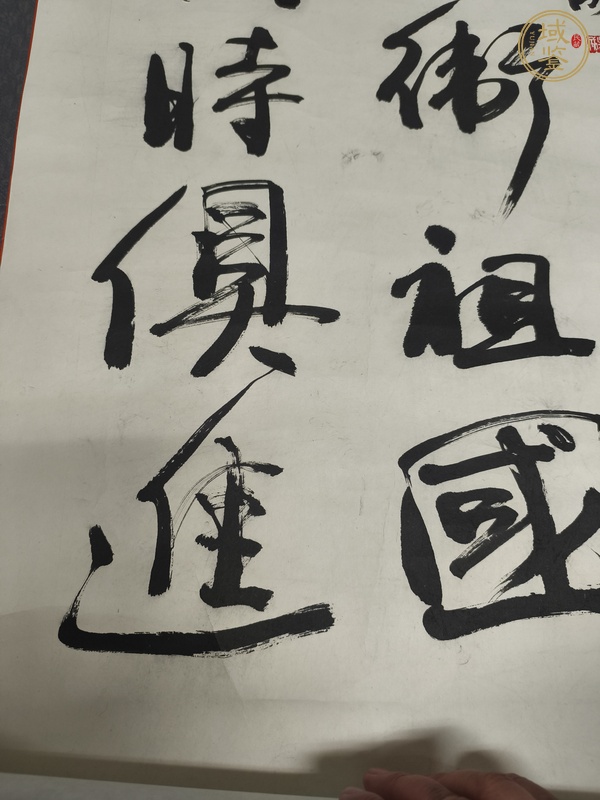 域鑒
衛祖國
時俱進